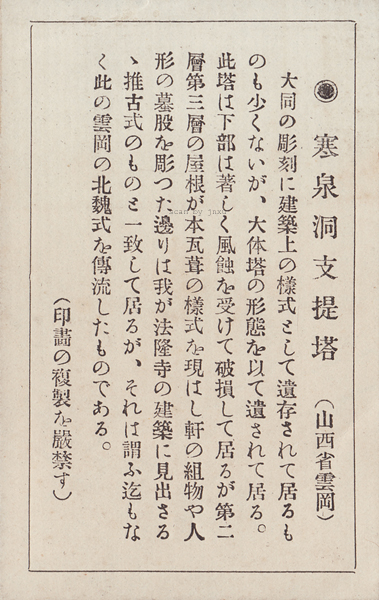 ◉ 寒泉洞支提塔 (山西省雲岡)
大同の彫刻に建築上の様式として遺存されて居るも
のも少くないが、大体塔の形態を以て遺されて居る。
此塔は下部は著しく風蝕を受けて破損して居るが第二
層第三層の屋根が本瓦葺の様式を現はし軒の組物や人
形の蟇股を彫つた邊りは我が法隆寺の建築に見出さる
ヽ推古式のものと一致して居るが、それは謂ふ迄もな
く此の雲岡の北魏式を傳流したものである。
(印畵の複製を嚴禁す)
scan by jmx